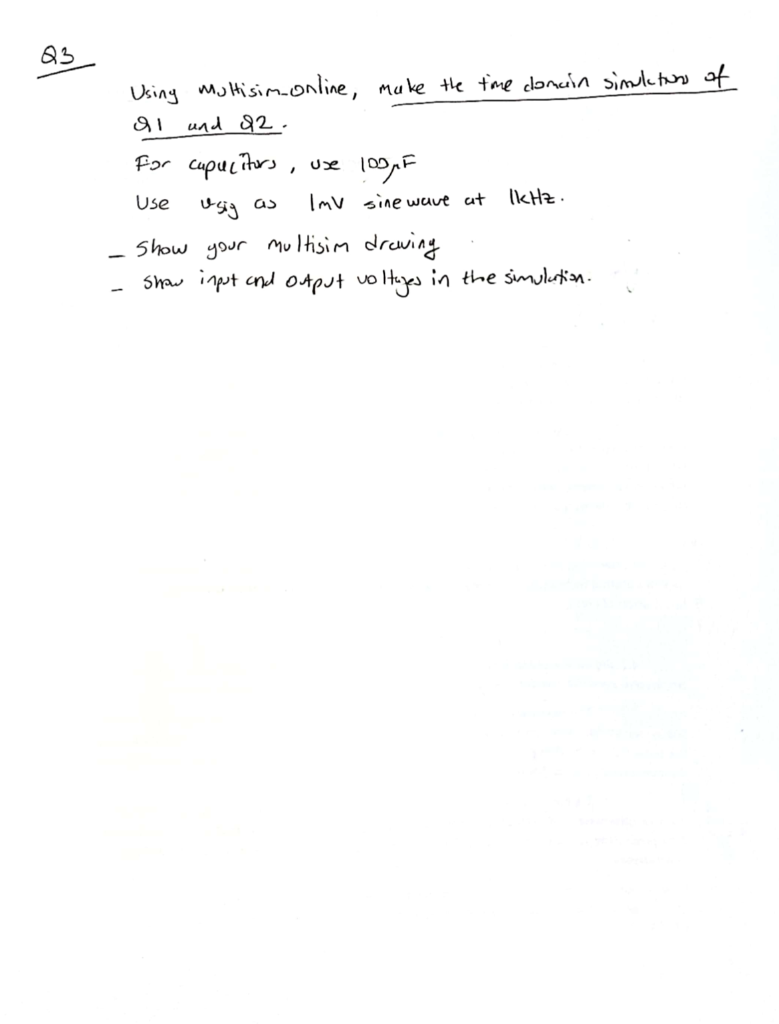 Q3
Using Multisim-online, make the time domain simulations of
Q1 and Q2.
For capacitors, use 100μF
Use vsig as 1mV sinewave at 1kHz.
- Show your multisim drawing
- Show input and output voltages in the simulation.